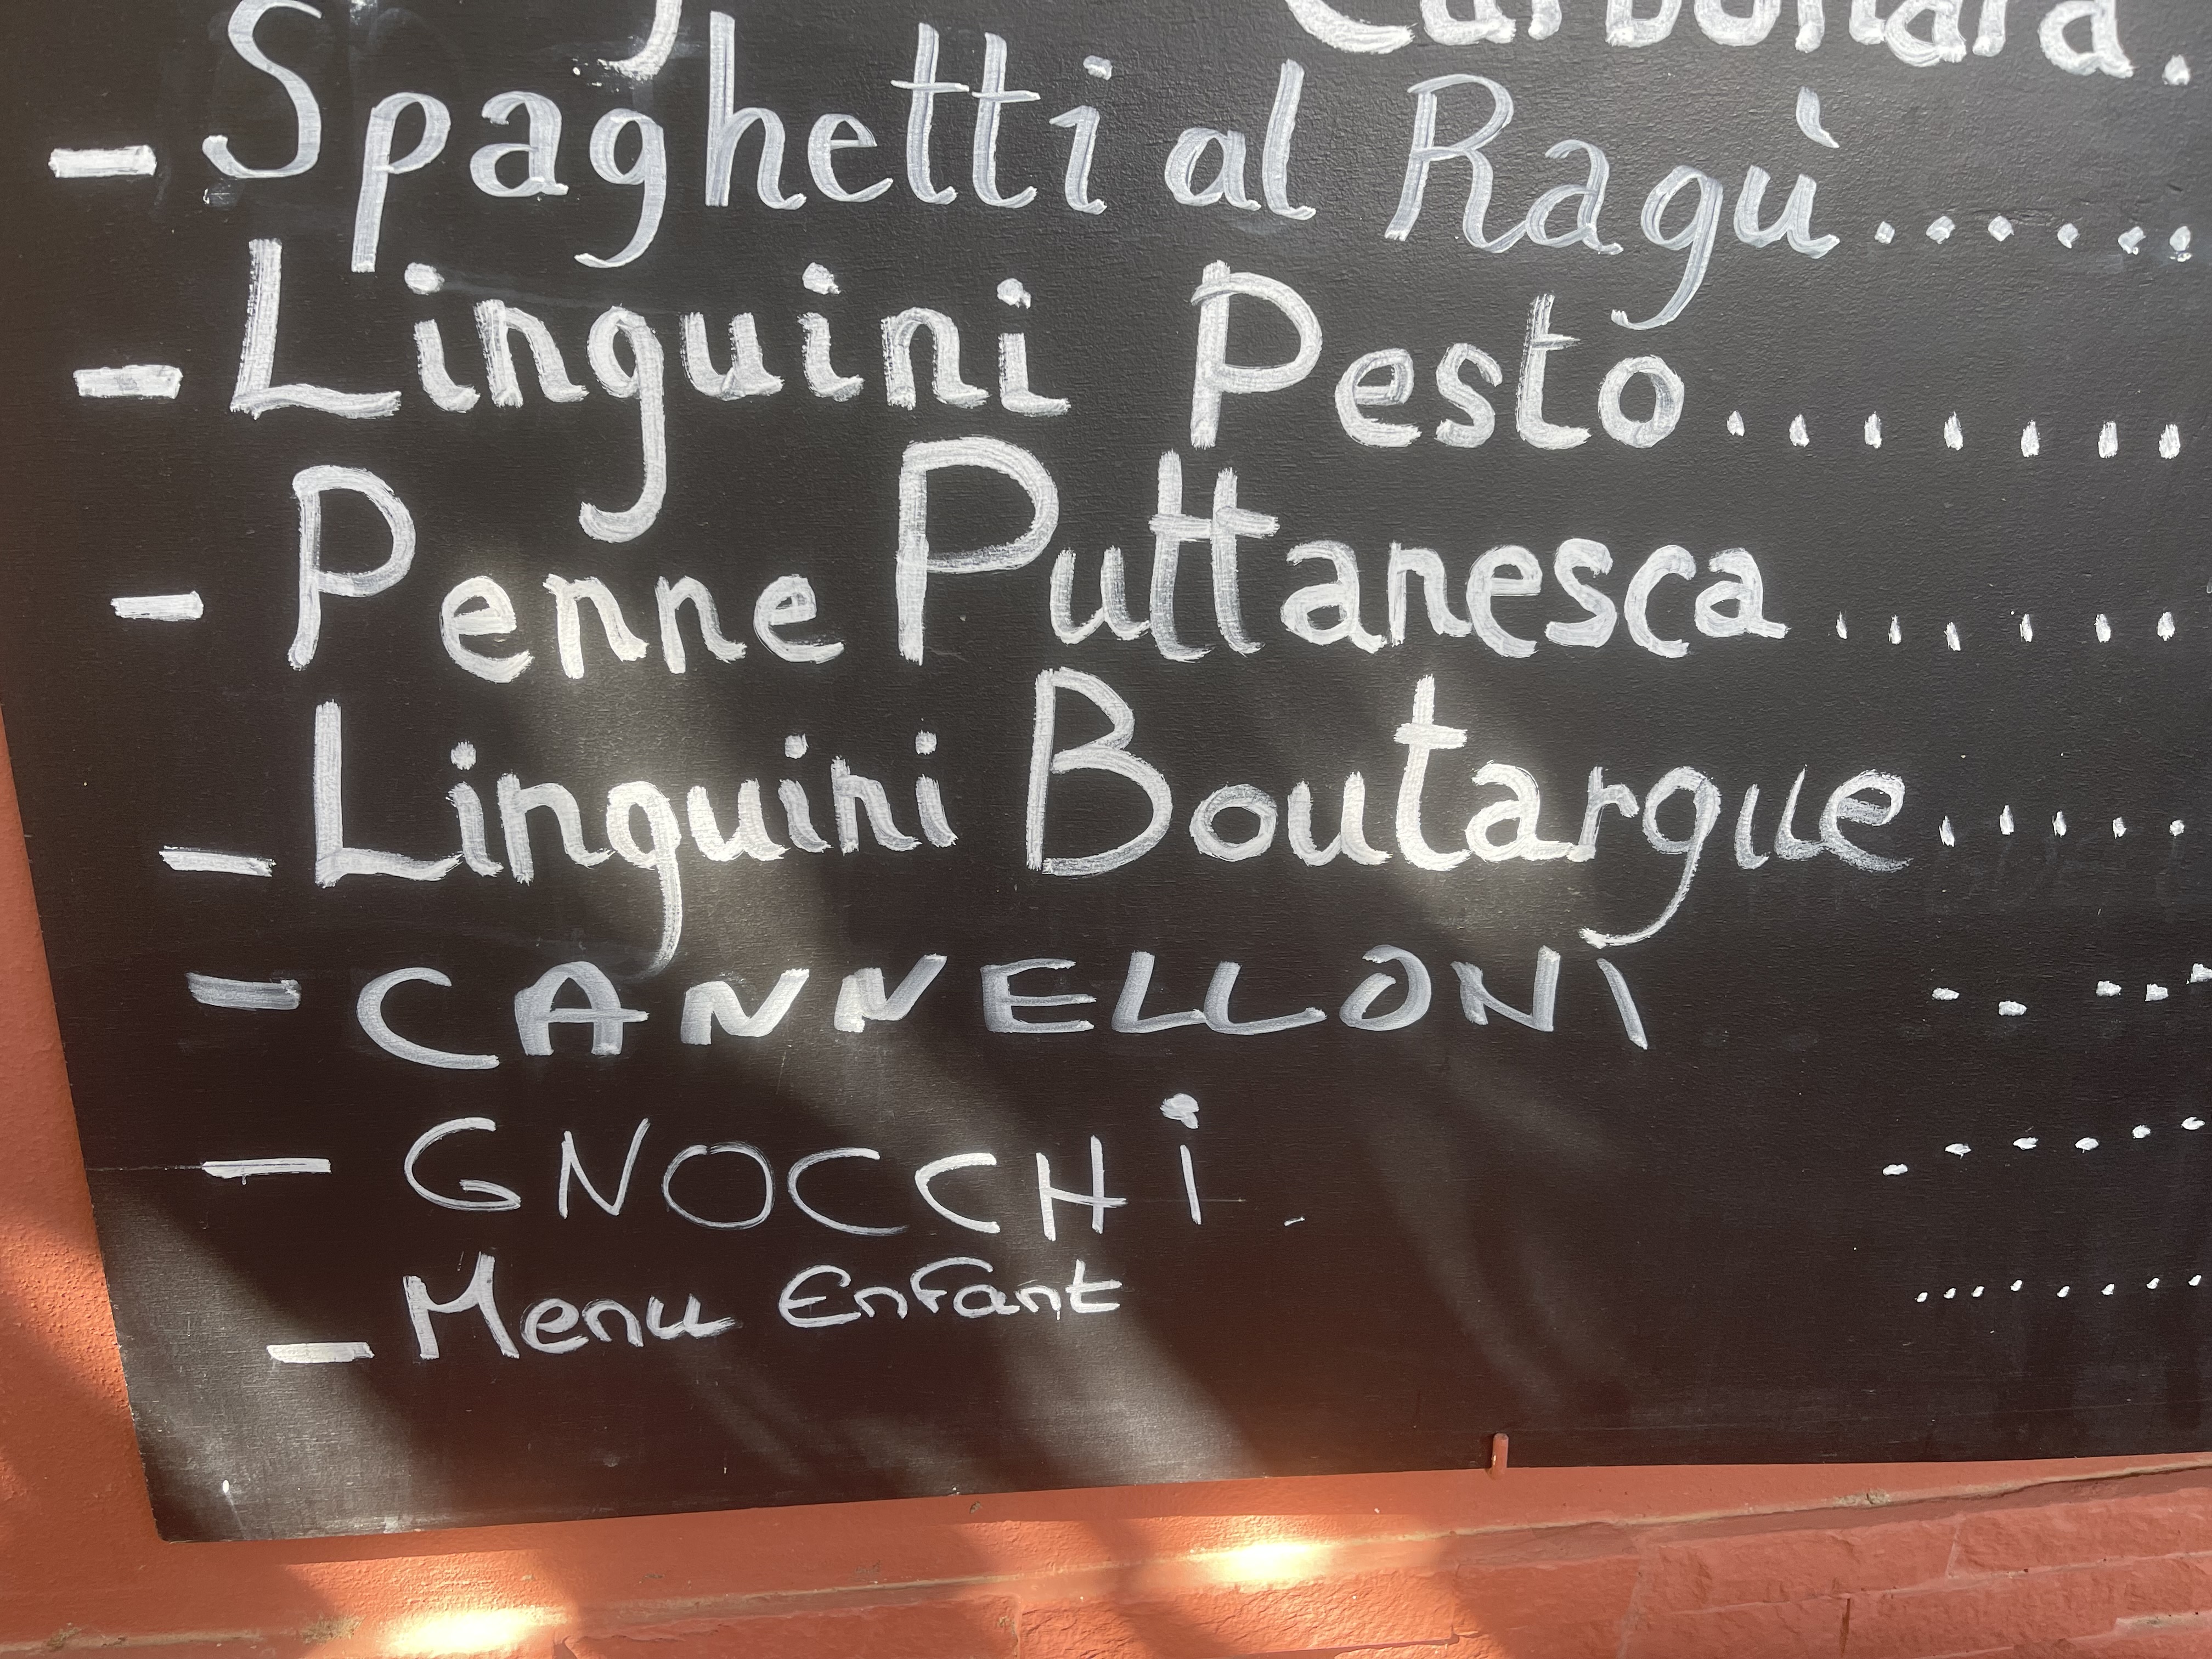 Carbonara.
- Spaghetti al Ragù......
- Linguini Pesto.......
- Penne Puttanesca......
- Linguini Boutargue.....
- CANNELLONI .....
- GNOCCHi . ......
- Menu Enfant .......